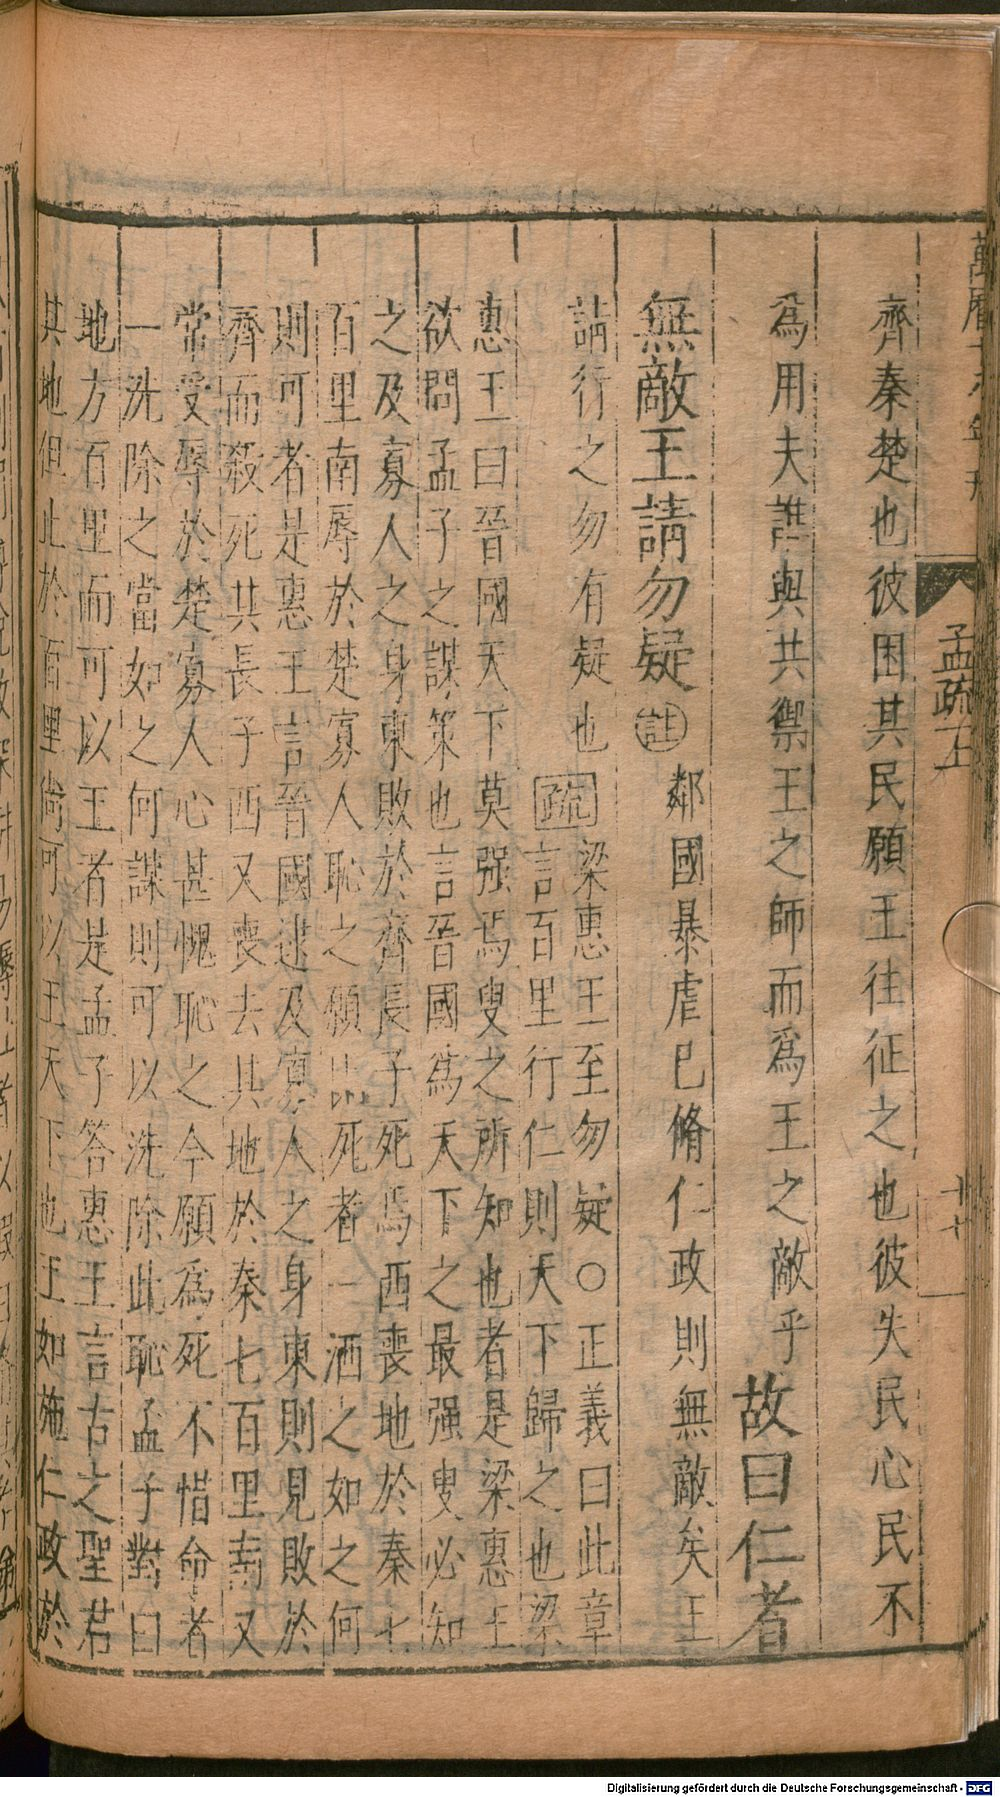 齊秦楚也彼困其民願王往征之也彼失民心民不
為用夫誰與共禦王之師而爲王之敵乎故曰仁者
無敵王請勿疑註鄰國暴虐已脩仁政則無敵矣王
請行之勿有疑也疏梁惠王至勿疑○正義曰此章
言百里行仁則天下歸之也梁
惠王曰晉國天下莫强焉叟之所知也者是梁惠王
欲問孟子之謀策也言晉國為天下之最强叟必知
之及寡人之身東敗於齊長子死焉西喪地於秦七
百里南辱於楚寡人恥之願比死者一洒之如之何
則可者是惠王言晉國逮及寡人之身東則見敗於
齊而殺死其長子西又喪去其地於秦七百里南又
常受辱於楚寡人心甚愧恥之今願爲死不惜命者
一洗除之當如之何謀則可以洗除此恥孟子對曰
地方百里而可以王者是孟子答惠王言古之聖君
其地但止於百里尚可以王天下也王如施仁政於
孟疏上
Digitalisierung gefördert durch die Deutsche Forschungsgemeinschaft - DFG